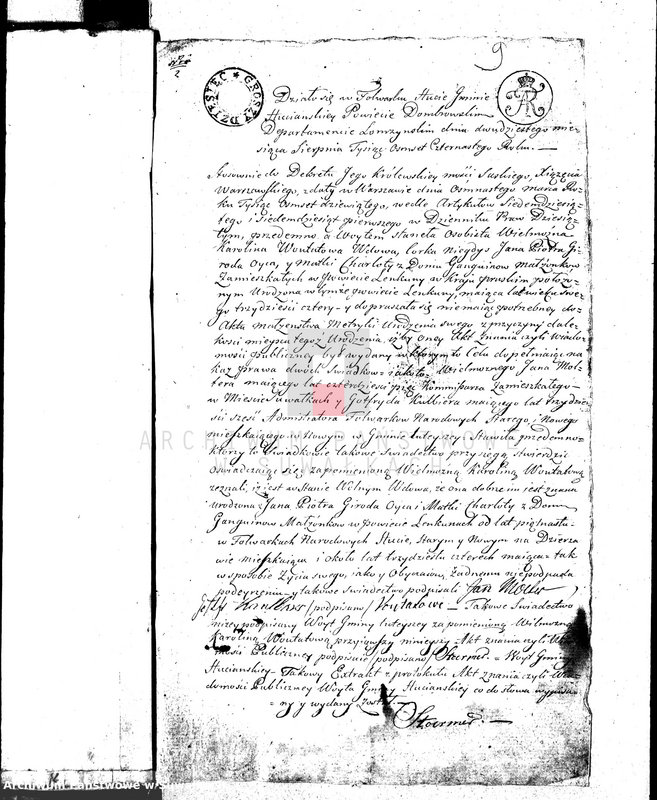 9
GROSZY DZIESIĘĆ
Działo się w Folwarku Hucie Gminie
Hucianskiey Powiecie Dombrowskim
Departamencie Łomzynskim dnia dwudziestego mie-
siąca Sierpnia Tysiąc Osmset Czternastego Roku. —
Stosownie do Dekretu Jego Królewskiey Mości Saskiego, Xiążęcia
Warszawskiego, z daty w Warszawie dnia Osmnastego Marca Ro-
ku Tysiąc Osmset dziewiątego, wedle Artykułow Siedemdziesią-
tego i Siedemdziesiąt pierwszego w Dzienniku Praw Dziesią-
tym, przedemną Woytem stanęła Osobista Wielmożna
Karolina Woututowa Wdowa, Corka niegdys Jana Piotra Gi-
roda Oyca, y Matki Charloty z Domu Ganguinow Małżonkow
Zamieszkałych w Powiecie Lenkuny w Kraju Pruskim położo-
nym Urodzona w tymże Powiecie Lenkuny, maiąca lat wieku swe-
go trzydzieści cztery — y dopraszała się nie maiąc potrzebney do
Aktu małżenstwa Metryki Urodzenia swego z przyczyny dale-
kości mieysca tegoż Urodzenia, iżby Oney Akt znania czyli Wiado-
mości Publiczney był wydany w którym to Celu dopełniaiąc na-
kaz prawa dwóch Swiadkow iako to: Wielmożnego Jana Mol-
tera maiącego lat czterdzieści pięć Kommissarza Zamieszkałego —
w Mieście Suwałkach y Gotfryda Kulbiera maiącego lat trzydzie-
ści sześć Admistratora Folwarkow Narodowych Starego i Nowego
mieszkaiącego w Nowym w Gminie tuteyszey Stawiła przedemną
którzy to Swiadkowie takowe Swiadectwo przysięgą stwierdzić
oswiadczaiąc się, zapomienioną Wielmożną Karolinę Woututową
zeznali, iż iest w Stanie Wolnym Wdowa, że ona dobrze im iest znana
urodzona z Jana Piotra Giroda Oyca i Matki Charloty z Domu
Ganguinow Małżonkow w Powiecie Lenkunach od lat piętnastu
w Folwarkach Narodowych Hucie, Starym y Nowym na Dzierza
wie mieszkaiąca i około lat trzydziestu czterech maiąca tak
w sposobie Zycia swego, iako y Obyczaiow, Żadnemu nie podpada
podeyrzeniu — y takowe Swiadectwo podpisali Jan Molter
/podpisano/ Woututowa — Takowe Swiadectwo
niżey podpisany Woyt Gminy tuteyszey za pomienioną Wilmożną
Karolinę Woututową przyiąwszy ninieyszy Akt znania czyli Wia
mości Publiczney podpisuie /podpisano/ Stoermer. Woyt Gminy
Hucianskiey — Takowy Extrakt z protokułu Akt znania czyli Wia
domości Publiczney Woyta Gminy Hucianskiey co do słowa wypisa
ny y wydany został —
Stoermer. —
ARCHIWUM PAŃSTWOWE
W SUWAŁKACH
Archiwum Państwowe w S